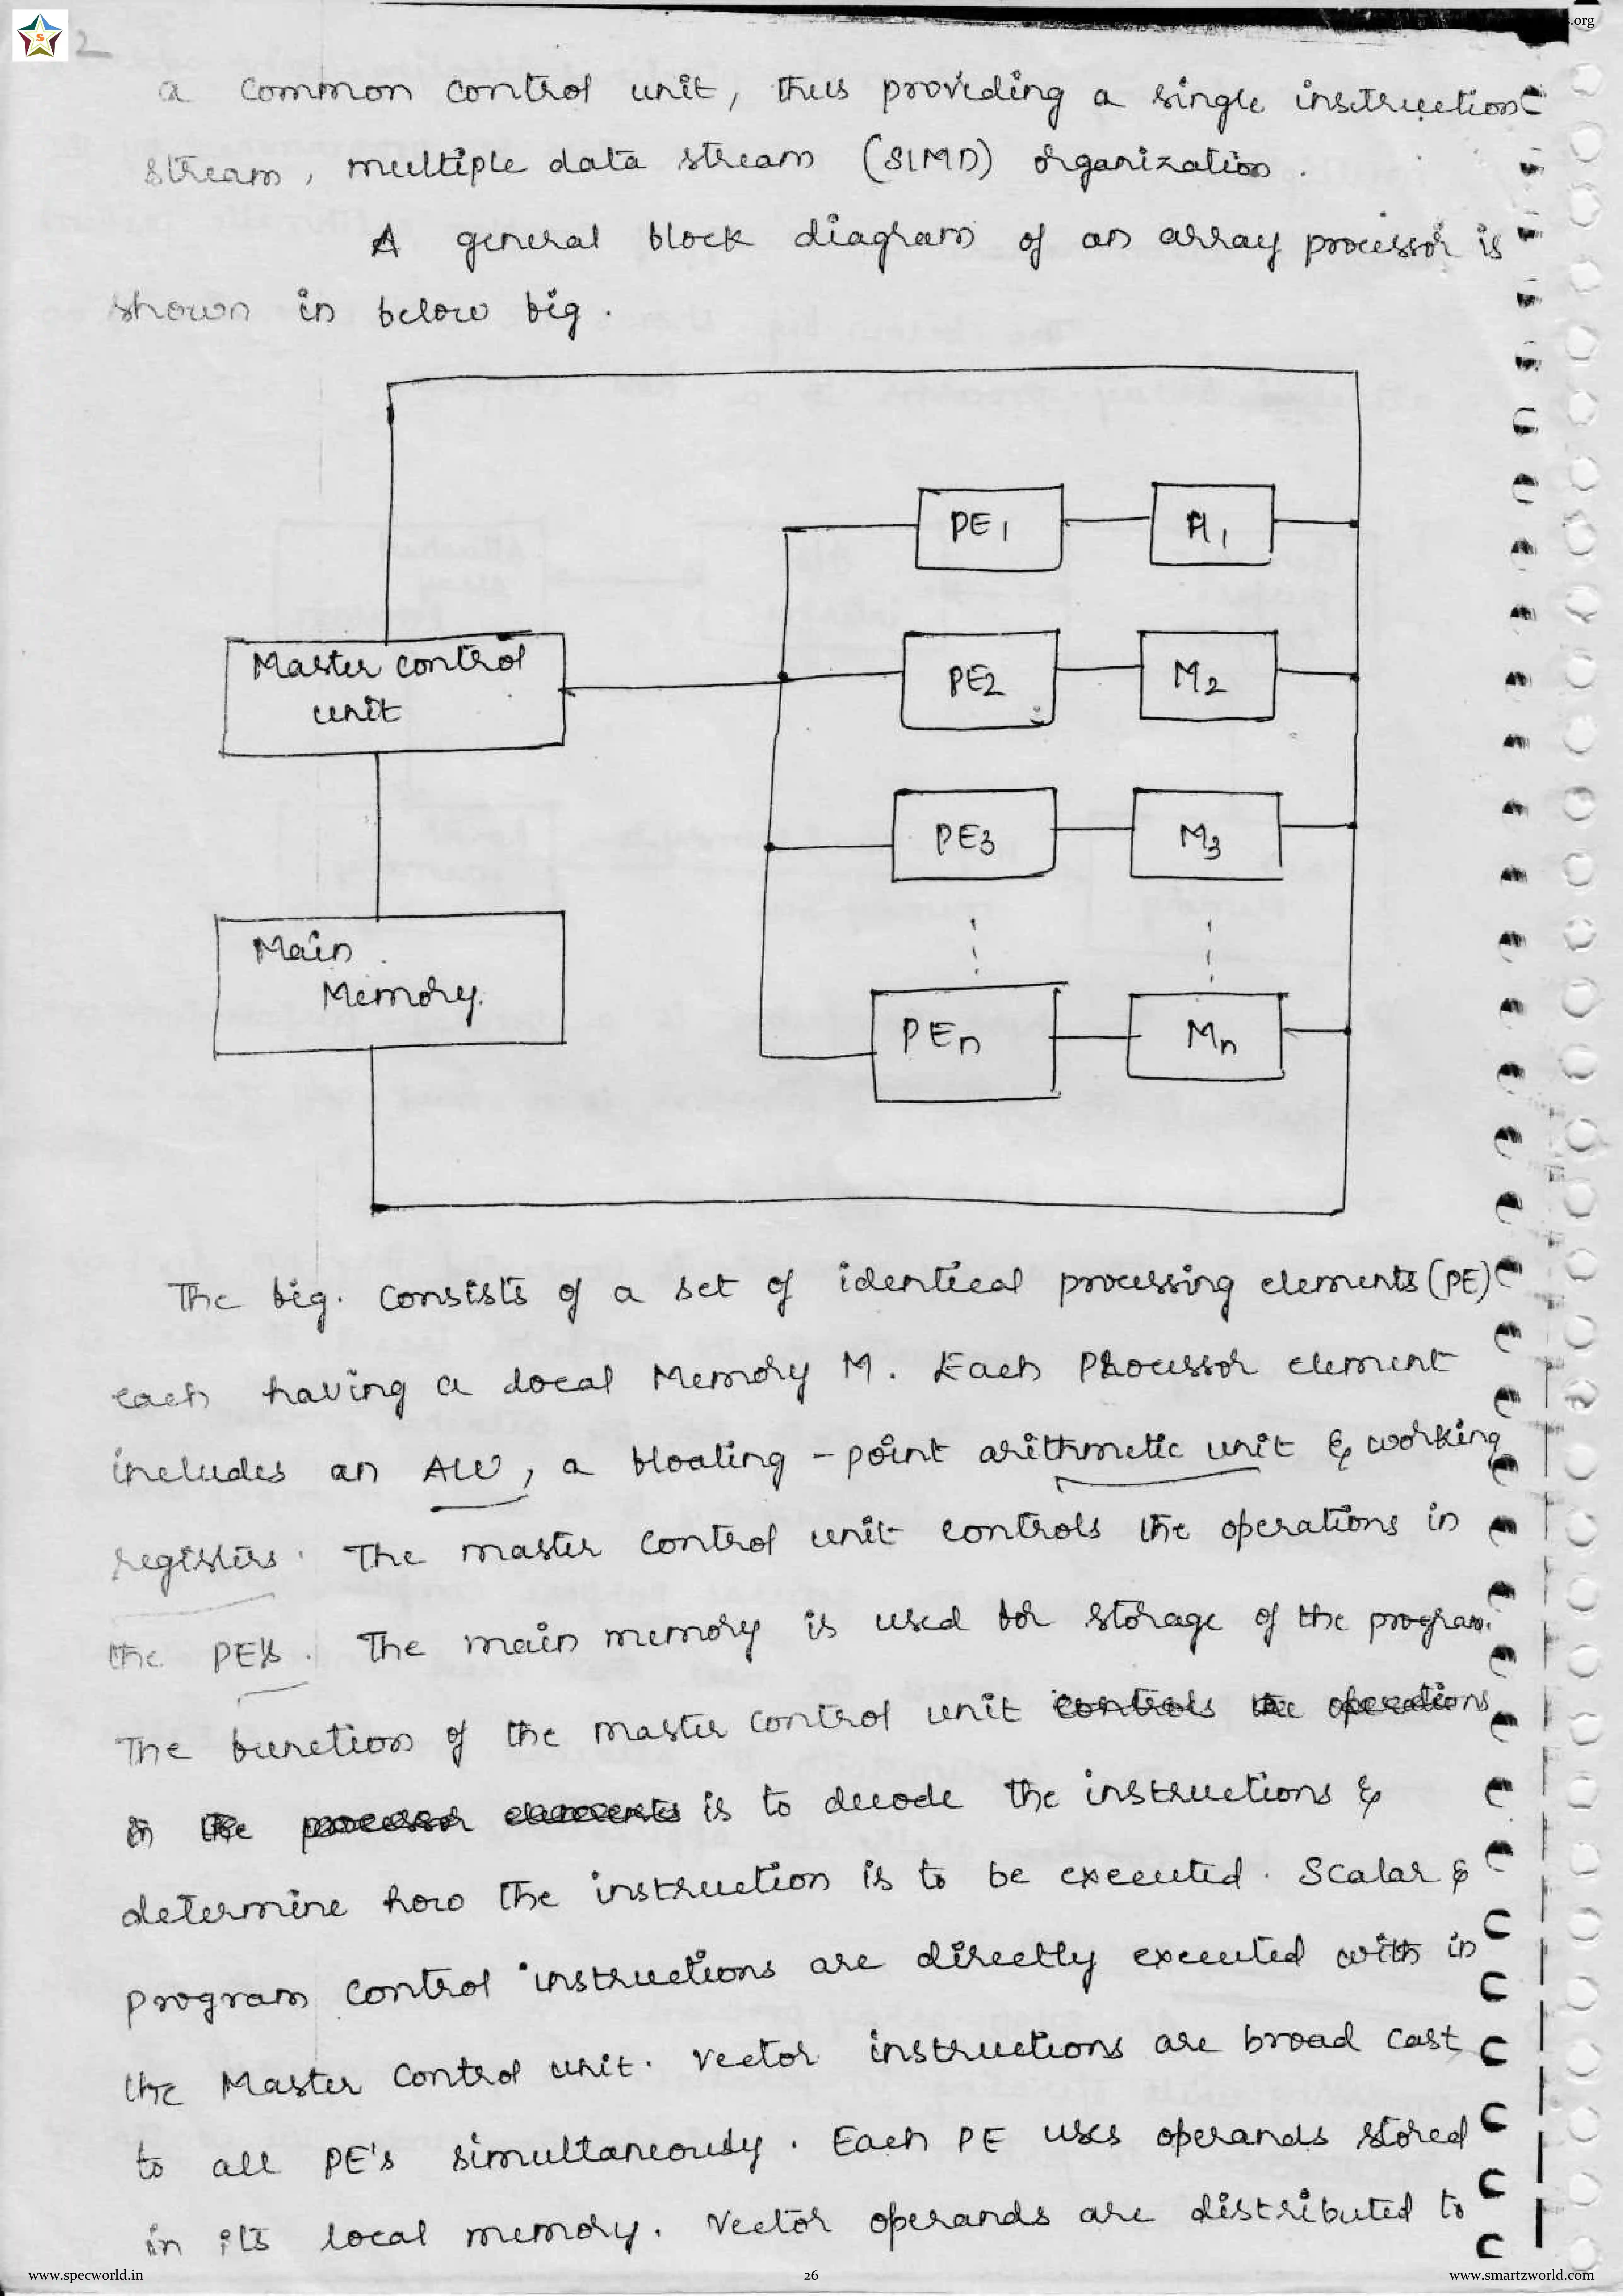 s.org
S
2
a common control unit, thus providing a single instruction
stream, multiple data stream (SIMD) organization.
A general block diagram of an array processor is
shown in below fig.
PE1
M1
Master control
unit
PE2
M2
PE3
M3
Main
Memory.
PEn
Mn
The fig. consists of a set of identical processing elements (PE)
each having a local Memory M. Each Processor element
includes an ALU, a floating-point arithmetic unit & working
registers. The master control unit controls the operations in
the PE's. The main memory is used for storage of the program.
The function of the master control unit controls the operations
in the processor elements is to decode the instructions &
determine how the instruction is to be executed. Scalar &
program control instructions are directly executed with in
the Master control unit. Vector instructions are broad cast
to all PE's simultaneously. Each PE uses operands stored
in its local memory. Vector operands are distributed to
www.specworld.in
26
www.smartzworld.com